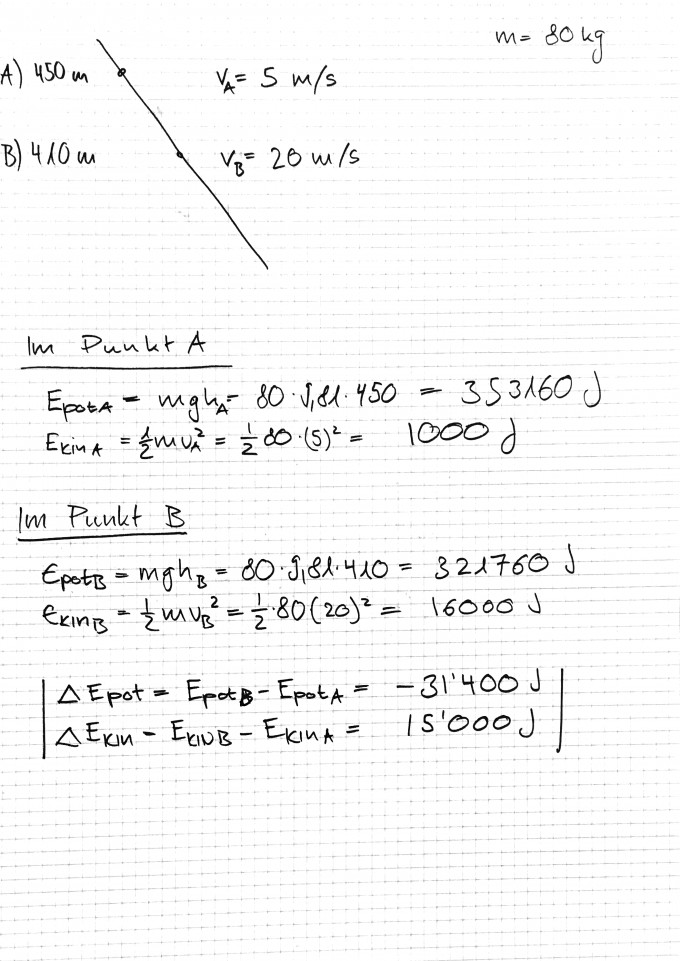 m= 80 kg
A) 450 m   v_A= 5 m/s
B) 410 m   v_B= 20 m/s
Im Punkt A
E_potA = mgh_A= 80·9,81·450 = 353160 J
E_kinA = ½mv_A² = ½ 80·(5)² = 1000 J
Im Punkt B
E_potB = mgh_B = 80·9,81·410 = 321760 J
E_kinB = ½mv_B² = ½·80(20)² = 16000 J
ΔEpot = E_potB - E_potA = -31'400 J
ΔE_kin = E_kinB - E_kinA = 15'000 J